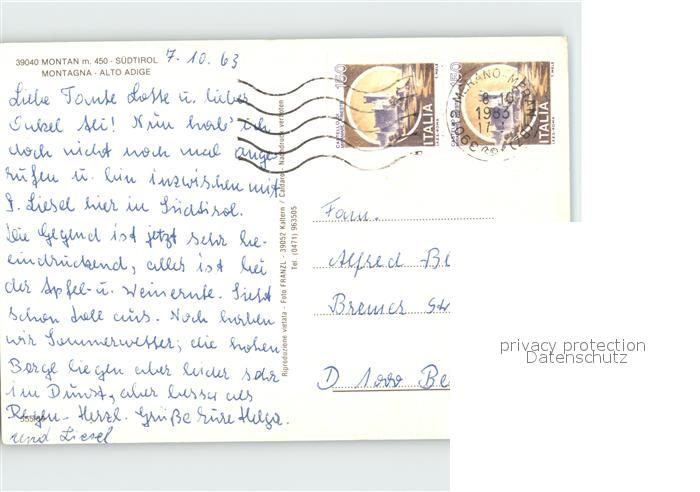 39040 MONTAN m. 450 - SÜDTIROL
MONTAGNA - ALTO ADIGE
7.10.63
Liebe Tante Lotte u. lieber
Onkel Ali! Nun hab' ich
doch nicht noch mal ange-
rufen u. bin inzwischen mit
Liesel hier in Südtirol.
Die Gegend ist jetzt sehr be-
eindruckend, alles ist bei
der Apfel- u. Weinernte. Sieht
schon toll aus. Noch haben
wir Sommerwetter; die hohen
Berge liegen aber leider sehr
im Dunst, aber besser als
Regen. Herzl. Grüße Eure Helga
und Liesel
Riproduzione vietata - Foto FRANZL - 39052 Kaltern / Caldaro - Nachdruck verboten
Tel. (0471) 963505
150
ITALIA
150
ITALIA
MERANO-MERAN
1983
Fam.
Alfred Be
Bremer Str
D 1000 Be
privacy protection
Datenschutz